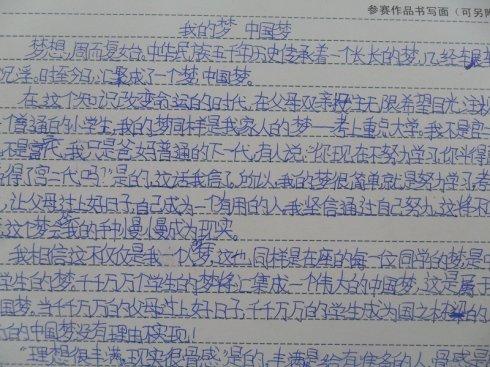 参赛作品书写面（可另附
我的梦 中国梦
梦想，周而复始。中华民族五千年历史传承着一个长长的梦，几经
沉浮。时至今日，汇聚成了一个梦，中国梦。
在这个知识改变命运的时代，在父母双亲无限希望目光注
个普通的小学生，我的梦同样是我家人的梦——考上重点大学，我不是官
不是富，我只是爸妈普通的下一代，有人说：“你现在不努力学习，你斗得
得了富二代吗？”是的，这话我信了，所以，我的梦很简单就是努力学习，考
，让父母过上好日子，自己成为一个有用的人，我坚信通过自己努力，这样
这个梦会在我的手中慢慢成为现实。
我相信这不仅仅是我一个人梦，这也同样是在座的每一位同学的梦是
学生的梦，千千万万个学生的梦将汇集成一个伟大的中国梦，这是属于
国梦。当千千万万的父母过上好日子，千千万万的学生成为国之栋梁的
的中国梦没有理由不实现！
“理想很丰满，现实很骨感”是的，丰满是给有准备的人，骨感是